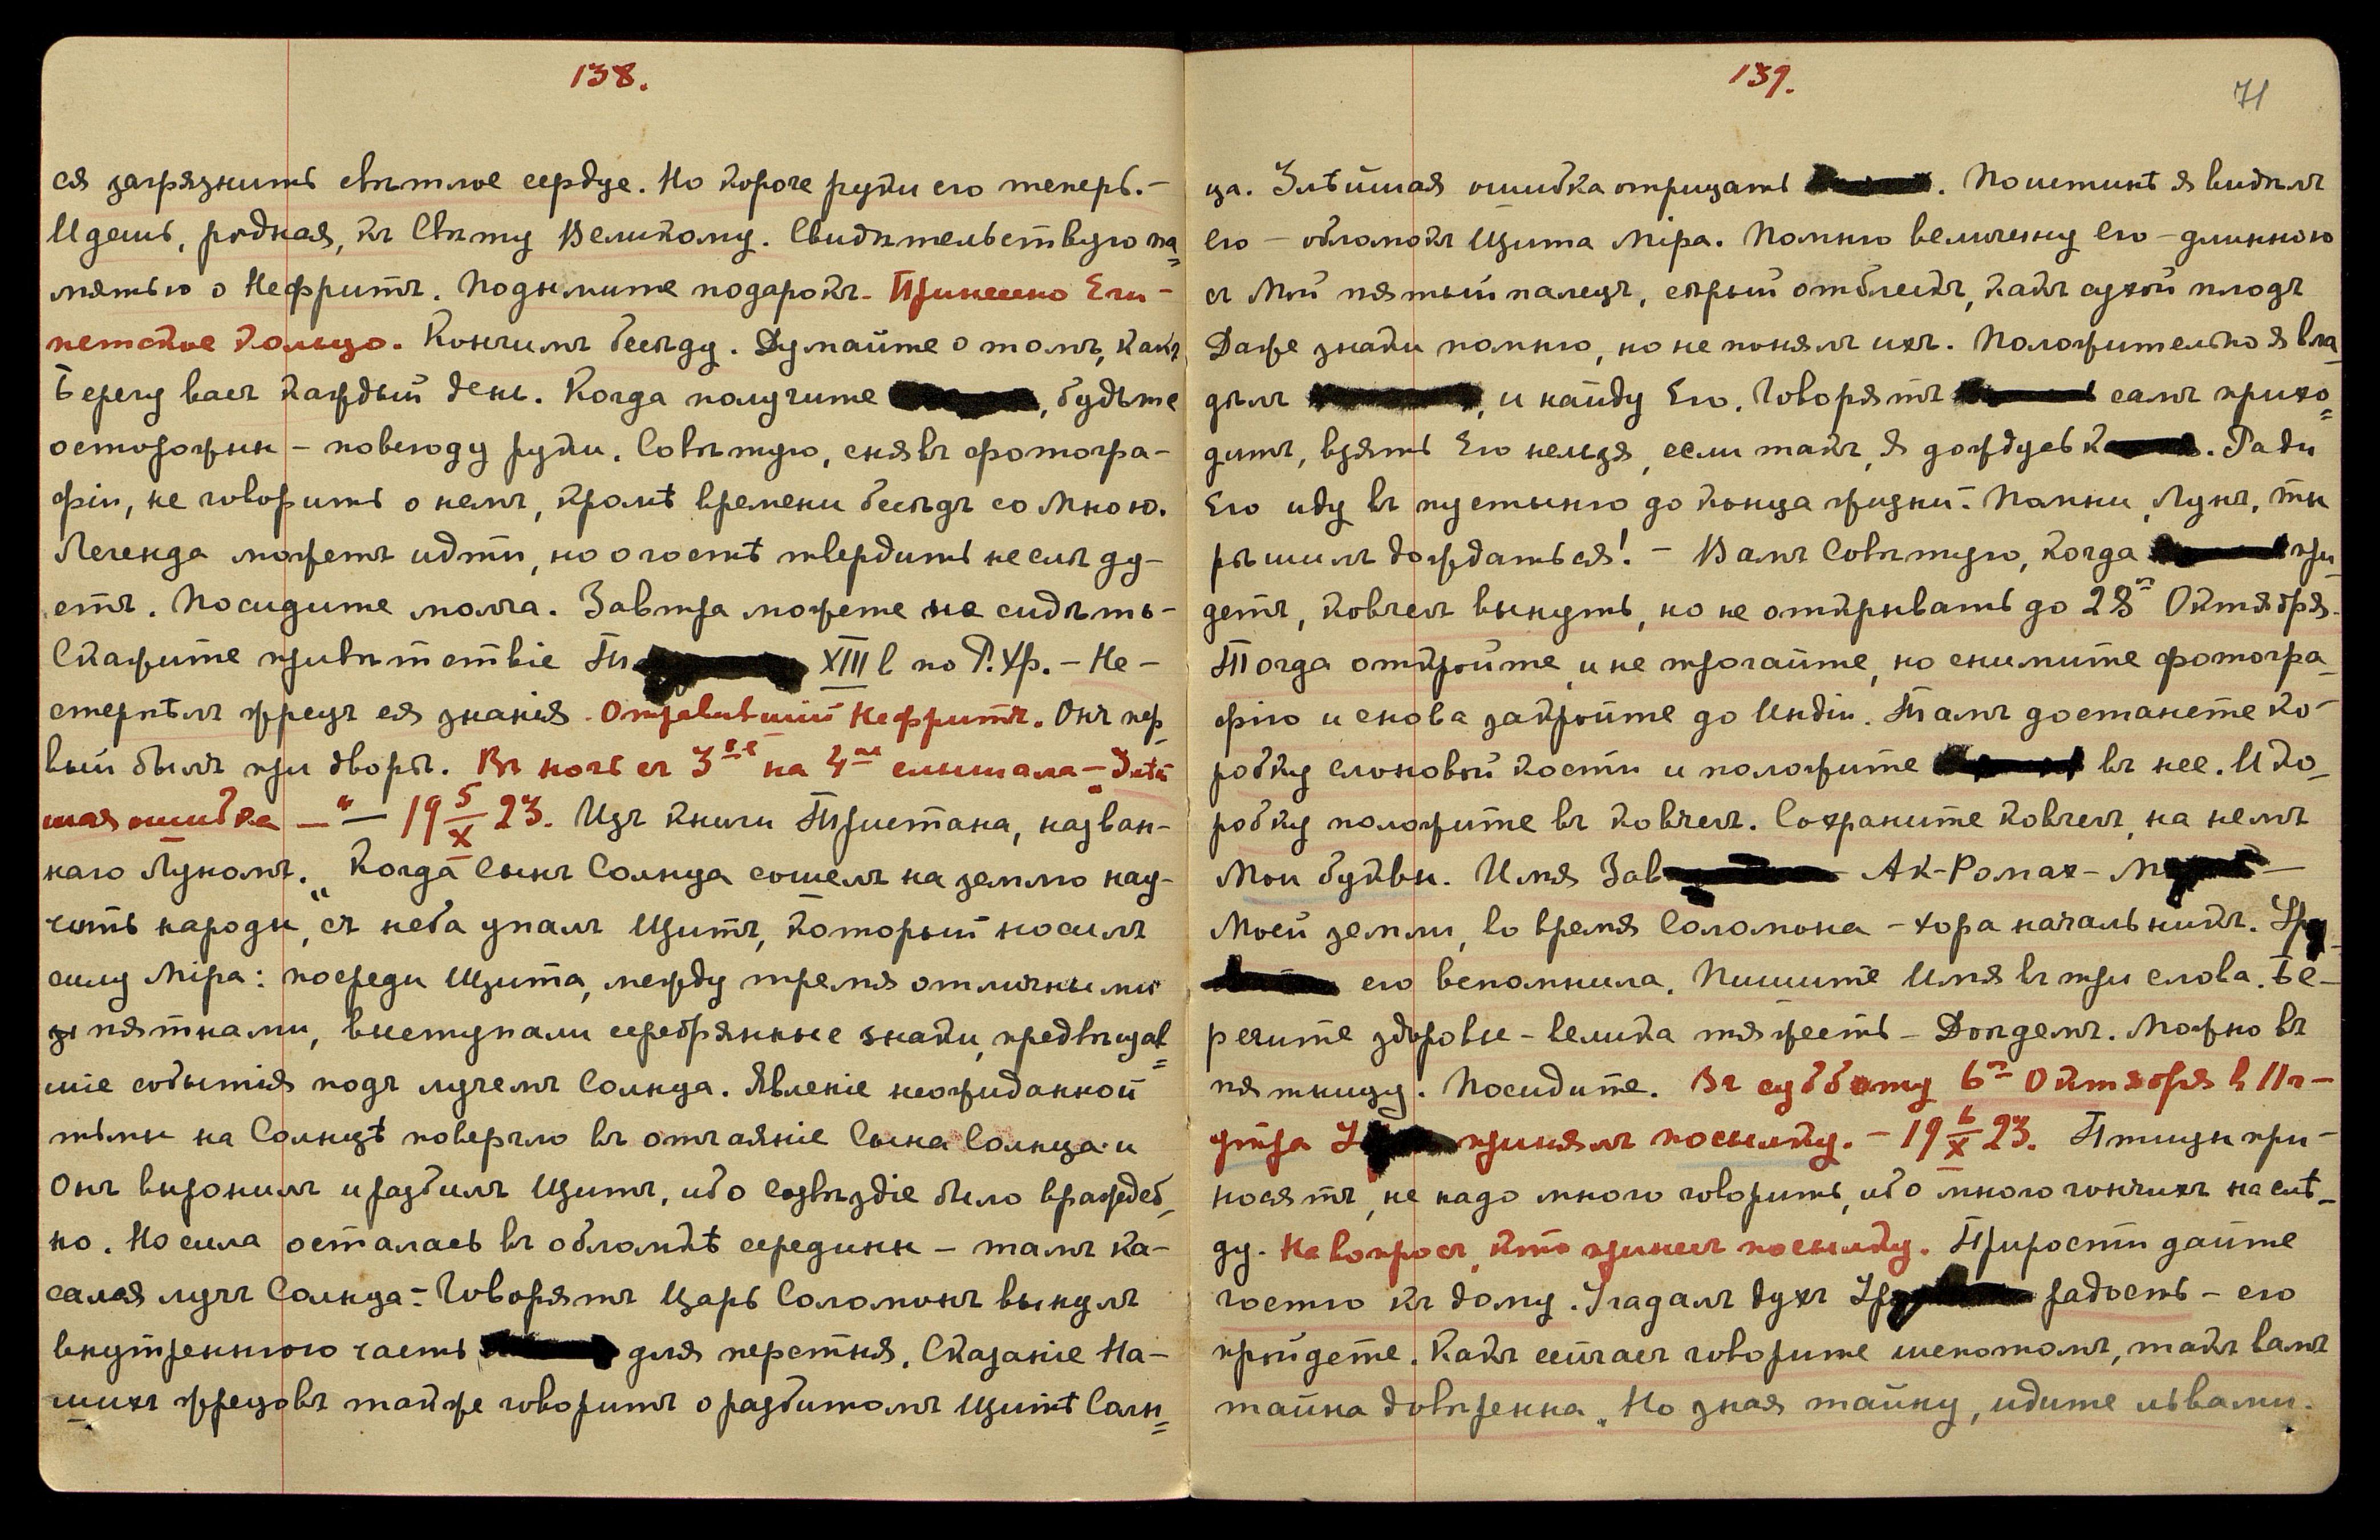 138.
ся загрязнить свѣтлое сердце. Но короче руки его теперь. –
Идешь, родная, къ Свѣту Великому. Свидѣтельствую па=
мятью о Нефритъ. Поднимите подарокъ – Принесено Еги–
петское кольцо. Кончимъ бесѣду. Думайте о томъ, какъ
Берегу васъ каждый день. Когда получите , будьте
осторожны – повсюду руки. Совѣтую, снявъ фотогра–
фiи, не говорить о немъ, кромѣ времени бесѣдъ со Мною.
Легенда можетъ идти, но о гостѣ твердить не слѣду–
етъ. Посидите молча. Завтра можете не сидѣть –
Скажите привѣтствiе XIII в по Р. Хр. – Не –
стерпѣлъ жрецъ ея знанiя. Отравившiй Нефритъ. Онъ пер_
вый былъ при дворѣ. Въ ночь съ 3го на 4ое слышала – „Злѣй
шая ошибка" – 19 5/X 23. Изъ книги Тристана, назван–
наго Луномъ. „Когда Сынъ Солнца сошелъ на землю нау–
чить народы, съ неба упалъ Щитъ, который носилъ
силу Мiра: посреди Щита, между тремя отличными
пятнами, выступали серебрянные знаки, предвѣщав=
шiе событiя подъ лучемъ Солнца. Явленiе неожиданной
тьмы на Солнцѣ повергло въ отчаянiе Сына Солнца и
Онъ выронилъ и разбилъ Щитъ, ибо созвѣздiе было враждеб_
но. Но сила осталась въ обломкѣ средины – тамъ ка–
сался лучъ Солнца. – Говорятъ Царь Соломонъ вынулъ
внутреннюю часть для перстня. Сказанiе На–
шихъ жрецовъ также говоритъ о разбитомъ Щитѣ Солн=
139.
71
ца. Злѣйшая ошибка отрицать . Поистинѣ я видѣлъ
его – обломокъ Щита Мiра. Помню величину его – длинною
съ Мой пятый палецъ, сѣрый отблескъ, какъ сухой плодъ
Даже знаки помню, но не понялъ ихъ. Положительно я вла_
дѣлъ , и найду Его. Говорятъ самъ прихо=
дитъ, взять Его нельзя, если такъ, я дождусь . Ради
Его иду въ пустыню до конца жизни. – Помни, Лунъ, ты
рѣшилъ дождаться! – Вамъ Совѣтую, когда при_
детъ, ковчегъ вынуть, но не открывать до 28го Октября.
Тогда откройте, и не трогайте, но снимите фотогра_
фiю и снова закройте до Индiи. Тамъ достанете ко–
робку слоновой кости и положите въ нее. И ко_
робку положите въ ковчегъ. Сохраните ковчегъ, на немъ
Мои буквы. Имя Ак-Ромах –
Моей земли, во время Соломона – хора начальникъ.
его вспомнила. Пишите Имя въ три слова. Бе–
регите здоровье – велика тяжесть – Дойдемъ. Можно въ
пятницу. Посидите. Въ субботу 6го Октября въ 11 ч –
утра принялъ посылку. – 19 6/X 23. Птицы при –
носятъ, не надо много говорить, ибо много гончихъ на слѣ_
ду. На вопросъ, кто принесъ посылку. Прирости дайте
гостю къ дому. Угадалъ духъ радость – его
пройдете. Какъ сейчасъ говорите шепотомъ, такъ вамъ
тайна довѣренна. Но зная тайну, идите львами.